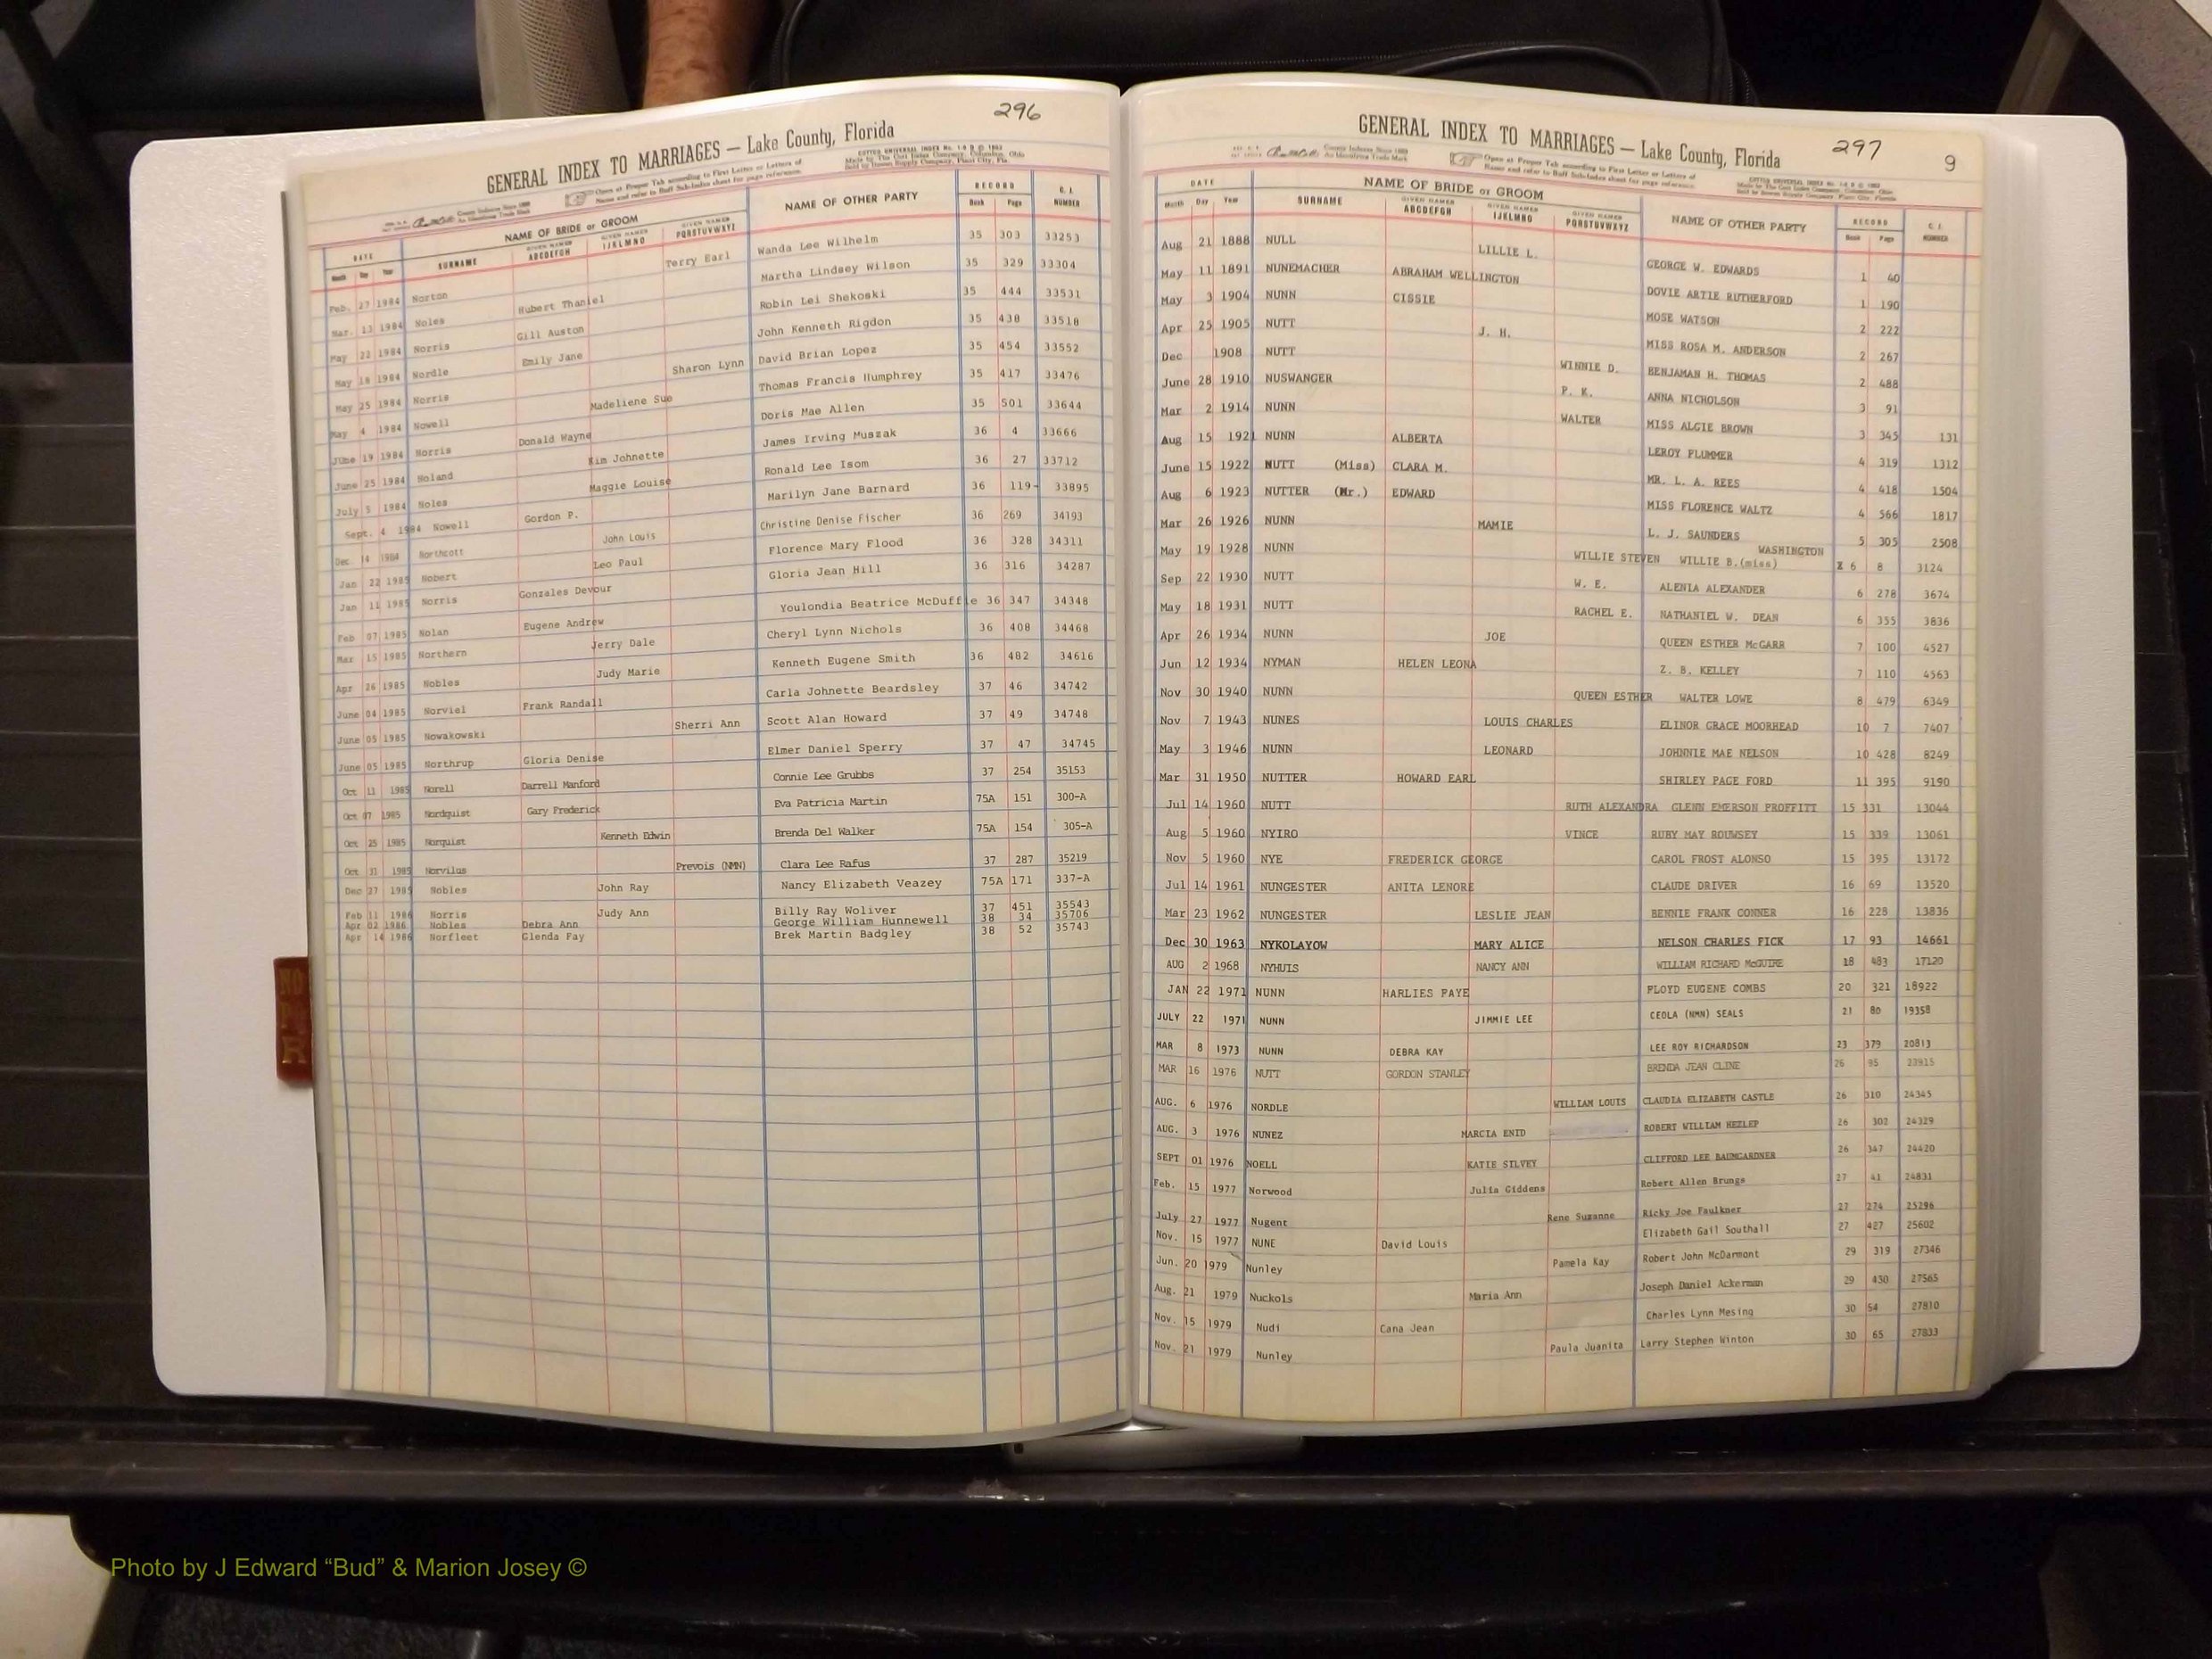 296
GENERAL INDEX TO MARRIAGES — Lake County, Florida
COTT'S UNIVERSAL INDEX
Open at Proper Tab according to First Letter or Letters of
Name and refer to Buff Sub-Index sheet for page reference.
DATE NAME OF BRIDE or GROOM NAME OF OTHER PARTY RECORD C. I.
Month Day Year SURNAME GIVEN NAMES ABCDEFGH GIVEN NAMES IJKLMNO GIVEN NAMES PQRSTUVWXYZ Book Page NUMBER
Feb. 27 1984 Norton Terry Earl Wanda Lee Wilhelm 35 303 33253
Mar. 13 1984 Noles Hubert Thaniel Martha Lindsey Wilson 35 329 33304
May 22 1984 Norris Gill Auston Robin Lei Shekoski 35 444 33531
May 18 1984 Nordle Emily Jane John Kenneth Rigdon 35 438 33518
May 25 1984 Norris Sharon Lynn David Brian Lopez 35 454 33552
May 4 1984 Nowell Madeliene Sue Thomas Francis Humphrey 35 417 33476
June 19 1984 Norris Donald Wayne Doris Mae Allen 35 501 33644
June 25 1984 Noland Kim Johnette James Irving Muszak 36 4 33666
July 5 1984 Noles Maggie Louise Ronald Lee Isom 36 27 33712
Sept. 4 1984 Nowell Gordon P. Marilyn Jane Barnard 36 119- 33895
Dec 14 1984 Northcott John Louis Christine Denise Fischer 36 269 34193
Jan 22 1985 Nobert Leo Paul Florence Mary Flood 36 328 34311
Jan 11 1985 Norris Gonzales Devour Gloria Jean Hill 36 316 34287
Feb 07 1985 Nolan Eugene Andrew Youlondia Beatrice McDuffie 36 347 34348
Mar 15 1985 Northern Jerry Dale Cheryl Lynn Nichols 36 408 34468
Apr 26 1985 Nobles Judy Marie Kenneth Eugene Smith 36 482 34616
June 04 1985 Norviel Frank Randall Carla Johnette Beardsley 37 46 34742
June 05 1985 Nowakowski Sherri Ann Scott Alan Howard 37 49 34748
June 05 1985 Northrup Gloria Denise Elmer Daniel Sperry 37 47 34745
Oct 11 1985 Norell Darrell Manford Connie Lee Grubbs 37 254 35153
Oct 07 1985 Nordquist Gary Frederick Eva Patricia Martin 75A 151 300-A
Oct 25 1985 Norquist Kenneth Edwin Brenda Del Walker 75A 154 305-A
Oct 31 1985 Norvilus Prevois (NMN) Clara Lee Rafus 37 287 35219
Dec 27 1985 Nobles John Ray Nancy Elizabeth Veazey 75A 171 337-A
Feb 11 1986 Norris Judy Ann Billy Ray Woliver 37 451 35543
Apr 02 1986 Nobles Debra Ann George William Hunnewell 38 34 35706
Apr 14 1986 Norfleet Glenda Fay Brek Martin Badgley 38 52 35743
297
9
GENERAL INDEX TO MARRIAGES — Lake County, Florida
Open at Proper Tab according to First Letter or Letters of
Name and refer to Buff Sub-Index sheet for page reference.
DATE NAME OF BRIDE or GROOM NAME OF OTHER PARTY RECORD C. I.
Month Day Year SURNAME GIVEN NAMES ABCDEFGH GIVEN NAMES IJKLMNO GIVEN NAMES PQRSTUVWXYZ Book Page NUMBER
Aug 21 1888 NULL LILLIE L. GEORGE W. EDWARDS 1 40
May 11 1891 NUNEMACHER ABRAHAM WELLINGTON DOVIE ARTIE RUTHERFORD 1 190
May 3 1904 NUNN CISSIE MOSE WATSON 2 222
Apr 25 1905 NUTT J. H. MISS ROSA M. ANDERSON 2 267
Dec 1908 NUTT WINNIE D. BENJAMAN H. THOMAS 2 488
June 28 1910 NUSWANGER P. K. ANNA NICHOLSON 3 91
Mar 2 1914 NUNN WALTER MISS ALGIE BROWN 3 345 131
Aug 15 1921 NUNN ALBERTA LEROY PLUMMER 4 319 1312
June 15 1922 NUTT (Miss) CLARA M. MR. L. A. REES 4 418 1504
Aug 6 1923 NUTTER (Mr.) EDWARD MISS FLORENCE WALTZ 4 566 1817
Mar 26 1926 NUNN MAMIE L. J. SAUNDERS 5 305 2508
May 19 1928 NUNN WILLIE STEVEN WILLIE B.(miss) WASHINGTON 6 8 3124
Sep 22 1930 NUTT W. E. ALENIA ALEXANDER 6 278 3674
May 18 1931 NUTT RACHEL E. NATHANIEL W. DEAN 6 355 3836
Apr 26 1934 NUNN JOE QUEEN ESTHER McGARR 7 100 4527
Jun 12 1934 NYMAN HELEN LEONA Z. B. KELLEY 7 110 4563
Nov 30 1940 NUNN QUEEN ESTHER WALTER LOWE 8 479 6349
Nov 7 1943 NUNES LOUIS CHARLES ELINOR GRACE MOORHEAD 10 7 7407
May 3 1946 NUNN LEONARD JOHNNIE MAE NELSON 10 428 8249
Mar 31 1950 NUTTER HOWARD EARL SHIRLEY PAGE FORD 11 395 9190
Jul 14 1960 NUTT RUTH ALEXANDRA GLENN EMERSON PROFFITT 15 331 13044
Aug 5 1960 NYIRO VINCE RUBY MAY ROUWSEY 15 339 13061
Nov 5 1960 NYE FREDERICK GEORGE CAROL FROST ALONSO 15 395 13172
Jul 14 1961 NUNGESTER ANITA LENORE CLAUDE DRIVER 16 69 13520
Mar 23 1962 NUNGESTER LESLIE JEAN BENNIE FRANK CONNER 16 228 13836
Dec 30 1963 NYKOLAYOW MARY ALICE NELSON CHARLES FICK 17 93 14661
AUG 2 1968 NYHUIS NANCY ANN WILLIAM RICHARD McGUIRE 18 483 17120
JAN 22 1971 NUNN HARLIES FAYE FLOYD EUGENE COMBS 20 321 18922
JULY 22 1971 NUNN JIMMIE LEE CEOLA (NMN) SEALS 21 80 19358
MAR 8 1973 NUNN DEBRA KAY LEE ROY RICHARDSON 23 379 20813
MAR 16 1976 NUTT GORDON STANLEY BRENDA JEAN CLINE 26 95 23915
AUG. 6 1976 NORDLE WILLIAM LOUIS CLAUDIA ELIZABETH CASTLE 26 310 24345
AUG. 3 1976 NUNEZ MARCIA ENID ROBERT WILLIAM HEZLEP 26 302 24329
SEPT 01 1976 NOELL KATIE SILVEY CLIFFORD LEE BAUMGARDNER 26 347 24420
Feb. 15 1977 Norwood Julia Giddens Robert Allen Brunge 27 41 24831
July 27 1977 Nugent Rene Suzanne Ricky Joe Faulkner 27 274 25296
Nov. 15 1977 NUNE David Louis Elizabeth Gail Southall 27 427 25602
Jun. 20 1979 Nunley Pamela Kay Robert John McDarmont 29 319 27346
Aug. 21 1979 Nuckols Maria Ann Joseph Daniel Ackerman 29 430 27565
Nov. 15 1979 Nudi Cana Jean Charles Lynn Mesing 30 54 27810
Nov. 21 1979 Nunley Paula Juanita Larry Stephen Winton 30 65 27833
NO
Photo by J Edward “Bud” & Marion Josey ©